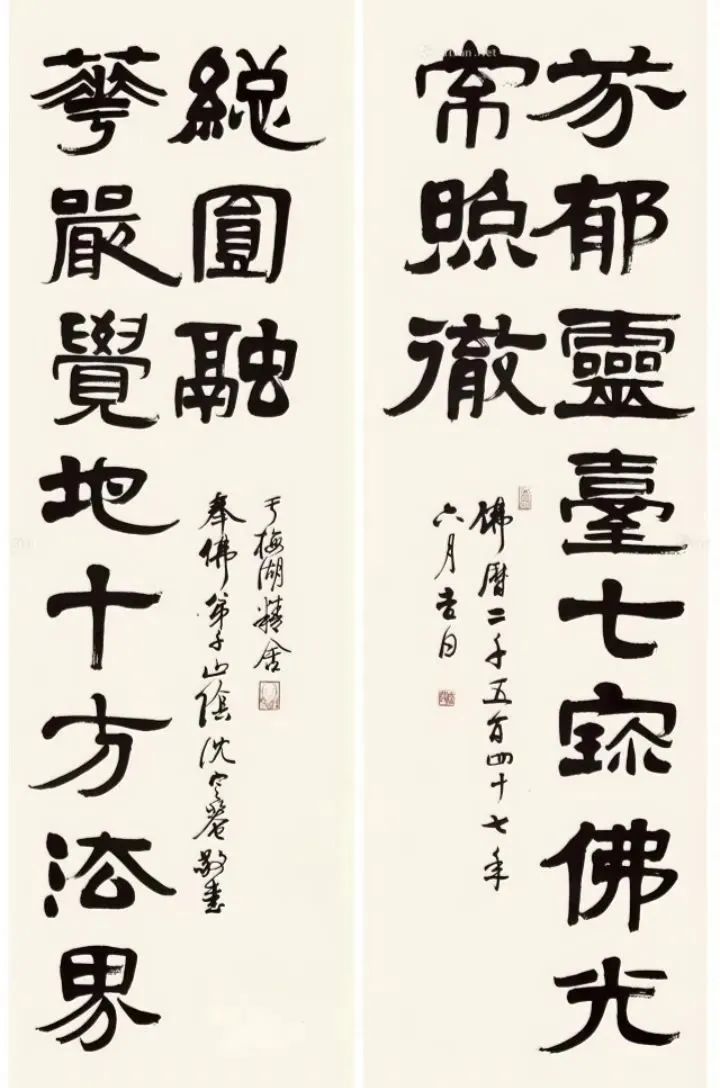 芬郁靈臺七寶佛光
常照徹
佛曆二千五百四十七年
六月吉日
華嚴覺地十方法界
總圓融
于梅湖精舍
奉佛弟子山陰沈定菴敬書